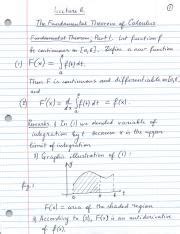 Lecture 8.
The Fundamental Theorem of Calculus
Fundamental Theorem, Part 1. Let function f
be continuous on [a,b]. Define a new function
(1) F(x) = ∫ₐˣ f(t) dt.
Then F is continuous and differentiable on [a,b],
and
(2) d/dx ∫ₐˣ f(t) dt = f(x).
Remarks 1. In (1) we denoted variable of
integration by t because x is the upper
limit of integration
2) Graphic illustration of (1):
fig. 1
F(x) = area of the shaded region
3) According to (2), F(x) is an antiderivative
of f(x).